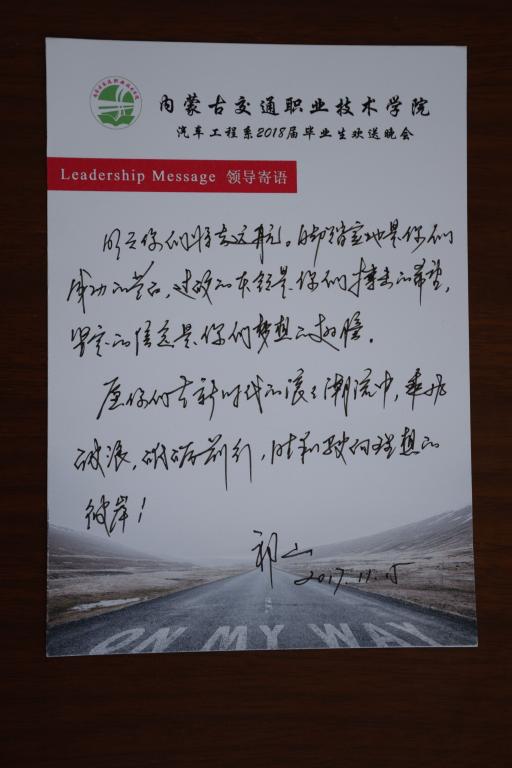 内蒙古交通职业技术学院
汽车工程系2018届毕业生欢送晚会
Leadership Message 领导寄语
明天你们将去远航。脚踏实地是你们
成功的基石，过硬的本领是你们搏击的希望，
坚定的信念是你们梦想的翅膀。
愿你们在新时代的滚滚潮流中，乘风
破浪，砥砺前行，胜利驶向理想的
彼岸！
祁山
2017.11.15
ON MY WAY